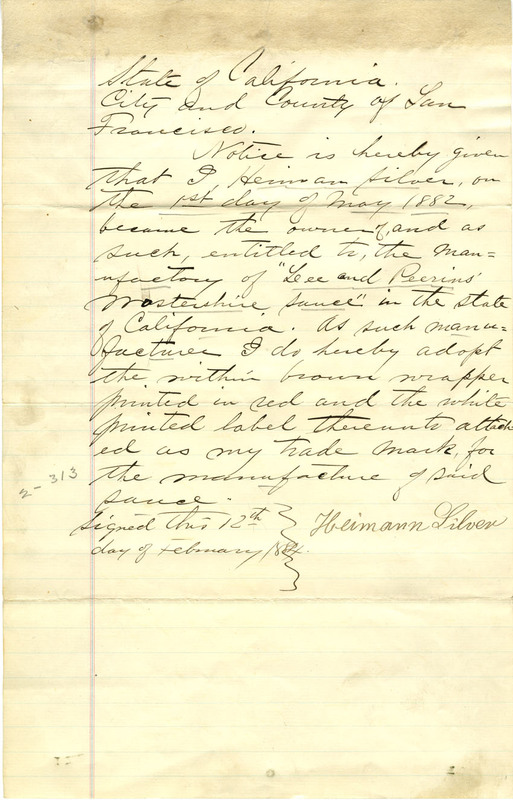 State of California.
City and County of San
Francisco.
Notice is hereby given
that I, Heiman Silver, on
the 1st day of May 1882,
became the owner of, and as
such, entitled to, the man=
ufactory of "Lee and Perrins'
Wostershire sauce" in the state
of California. As such manu=
facturer I do hereby adopt
the within brown wrapper
printed in red and the white
printed label thereunto attach
ed as my trade mark, for
the manufacture of said
sauce.
2-313
Signed this 12th
day of February 1884.
Heimann Silver